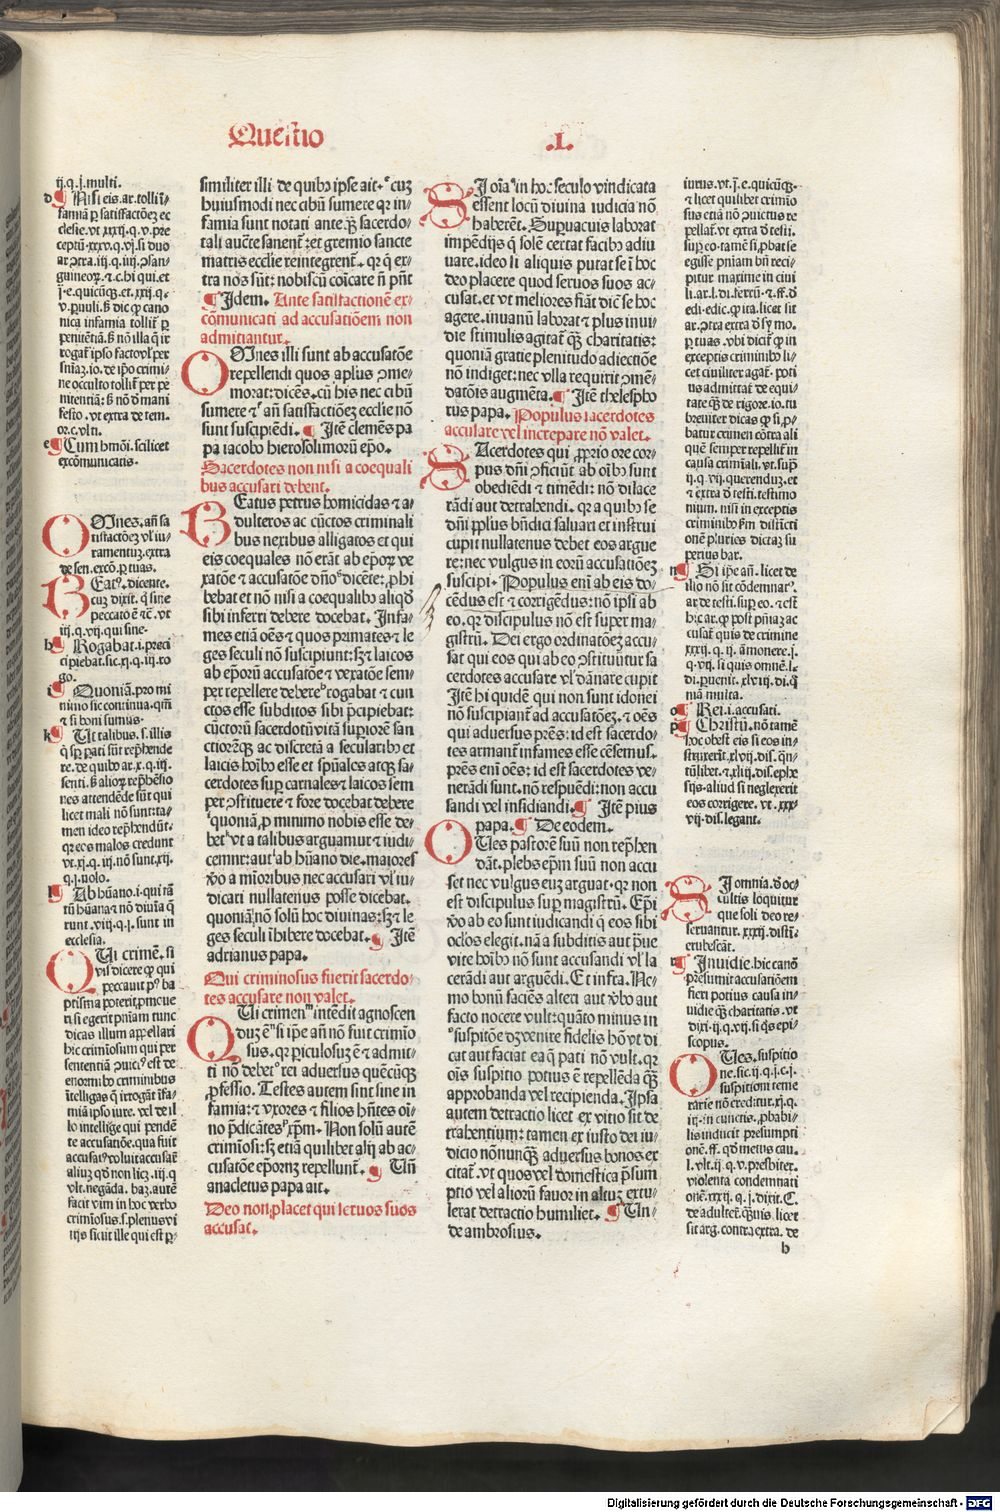 Questio .I.
ij.q.j.multi.
d¶ Nisi eis.ar.tolli ī-
famiā ꝑ satisfactōeꝫ ec
clesie.vt xxxij.q.v.pre
ceptū.xxv.q.vj.si duo
penitētiā.ß nō illa q̄ ir
fefto.vt extra de tem.
or.c.vlti.
e¶ Cum hmōi.scilicet
excōmunicatis.
OMnes.añ sa
tisfactōeꝫ vl' iu-
ramentuꝫ.extra
de sen.excō.ꝑ tuas.
BEatꝰ.dicente.
cuꝫ dixit.q̄ sine
peccato ē ⁊c.vt
iij.q.vij.qui sine.
h¶ Rogabat.i.preci
cipiebat.sic.xj.q.iij.ro
go.
i¶ Quoniā.pro mi
nimo sic continua.qm̄
⁊ si boni sumus.
k¶ Ut talibus.s.illis
licet mali nō sunt:ta-
men ideo rep̄hendūt.
qꝛ eos malos credunt
vt.xj.q.iij.nō sunt.xij.
q.j.nolo.
l¶ Ab hūano.i.qui tā
tū hūana ⁊ nō diuīa q̄
runt.viij.q.j.sunt in
ecclesia.
QUi crimē.si
vis dicere ꝙ qui
peccauit pꝰ ba
ptisma poterit.pmoue
ri si egerit pniam tunc
dicas illum appellari
hic crimīosum qui per
sententiā ꝯuictꝰ est de
enormibꝰ criminibus
ītelligas q̄ irrogāt īfa-
miā ipso iure. vel de il
lo intellige qui pendē
te accusatiōe.qua fuit
accusatꝰ voluit accusaē
facit vim in hoc verbo
crimīosus.s.plenus vi
tijs sicut ille qui est ꝑ-
similiter illi de quibꝰ ipse ait.ᵉ cuꝫ
huiusmodi nec cibū sumere qꝛ in-
famia sunt notati ante.q̄ꝫ sacerdo-
tali aucte sanent̄:et gremio sancte
matris ecclie reintegrent̄. qꝛ q̄ ex-
tra nos sūt: nobiscū cōicare ñ pn̄t
¶ Idem. Ante satisfactionē ex-
cōmunicati ad accusatiōem non
admittantur.
OMnes illi sunt ab accusatōe
repellendi quos aplus ꝯme-
morat:dicēs.cū his nec cibū
sumere ⁊ᶠ añ satisfactiōeꝫ ecclie nō
sunt suscipiēdi. ¶ Itē clemēs pa
pa iacobo hierosolimorū epō.
Sacerdotes non nisi a coequali
bus accusari debent.
BEatus petrus homicidas ⁊ a-
dulteros ac cūctos criminali
bus nexibus alligatos et qui
eis coequales nō erāt ab epoꝝ ve
xatōe ⁊ accusatōe dn̄oᵍ dicēte:ꝓhi
bebat et nō nisi a coequalibꝰ aliqd
sibi inferri debere docebat. Infa-
mes etiā oēs ⁊ quos primates ⁊ le
ges seculi nō suscipiunt:sꝫ ⁊ laicos
ab epoꝝ accusatōe ⁊ vexatōe sem-
per repellere debereʰ rogabat ⁊ cun
ctos esse subditos sibi p̄cipiebat:
cūctorū sacerdotū vitā supiorē san
ctiorēqꝫ ac discretā a secularibꝰ et
laicis hoībꝰ esse et spūales atqꝫ sa-
cerdotes suꝑ carnales ⁊ laicos sem
per ꝯstituere ⁊ fore docebat debere
ⁱquoniā ꝓ minimo nobis esse de-
betᵏ vt a talibus arguamur ⁊ iudi-
cemur:autˡ ab hūano die.maiores
v̄o a mīoribus nec accusari vl' iu-
dicari nullatenus posse dicebat.
quoniā nō solū hoc diuinas:sꝫ ⁊ le
ges seculi īhibere docebat.¶ Itē
adrianus papa.
Qui criminosus fuerit sacerdo-
tes accusare non valet.
QUi crimenᵐ intēdit agnoscen
duꝫ ēⁿ si ipe añ nō fuit crimīo
sus. qꝛ piculosuꝫ ē ⁊ admit-
ti nō debetᵒ rei aduersus quēcūqꝫ
ꝓfessio. Testes autem sint sine in
famia:⁊ vxores ⁊ filios hn̄tes oī-
no p̄dicātesᵖ xp̄m. Non solū autē
crimīosi:sꝫ etiā quilibet alij ab ac-
cusatōe epoꝝ repellunt̄. ¶ Uñ
anacletus papa ait.
Deo non placet qui seruos suos
accusat.
SI oīaᑫ in hoc seculo vindicata
essent locū diuina iudicia nō
haberēt. Supuacuis laborat
impēdijs q̄ solē certat facibꝰ adiu
uare.ideo si aliquis putat se ī hoc
deo placere quod seruos suos ac-
cusat.et vt meliores fiāt dicit se hoc
agere.inuanū laborat ⁊ plus inui-
die stimulis agitat̄ q̄ꝫ charitatis:
quoniā gratie plenitudo adiectōe
nō indiget:nec vlla requirit ꝯmē-
datōis augmēta.¶ Itē thelespho
rus papa. Populus sacerdotes
accusare vel increpare nō valet.
SAcerdotes qui ꝓprio ore cor-
pus dn̄i ꝯficiūt ab oībꝰ sunt
obediēdi ⁊ timēdi: nō dilace
rādi aut detrahendi. qꝛ a quibꝰ se
dn̄i ꝓplus bn̄dici saluari et instrui
cupit nullatenus debet eos argue
re:nec vulgus in eorū accusatiōeꝫ
suscipi. Populus eni ab eis do-
cēdus est ⁊ corrigēdus:nō ipsi ab
eo.qꝛ discipulus nō est super ma-
gistrū. Dei ergo ordinatōeꝫ accu-
sat qui eos qui ab eo ꝯstituūtur sa
cerdotes accusare vl' dānare cupit
Itē hi quidē qui non sunt idonei
nō suscipiant̄ ad accusatōeꝫ.⁊ oēs
qui aduersus prēs:id est sacerdo-
tes armant̄ infames esse cēsemus.
prēs eni oēs:id est sacerdotes ve-
nerādi sunt.nō respuēdi:non accu
sandi vel insidiandi.¶ Itē pius
papa.¶ De eodem.
OUes pastorē suū non rep̄hen
dāt.plebs ep̄m suū non accu
set nec vulgus euꝫ arguat.qꝛ non
est discipulus sup magistrū. Epī
v̄o ab eo sunt iudicandi q̄ eos sibi
oclōs elegit.nā a subditis aut p̄ue
vite hoībꝰ nō sunt accusandi vl' la
cerādi aut arguēdi. Et infra. Ne-
mo bonū faciēs alteri aut v̄bo aut
facto nocere vult:quāto minus in
suspitōe dꝫ venire fidelis hō vt di
cat aut faciat ea q̄ pati nō vult.qꝛ
oīs suspitio potius ē repellēda q̄ꝫ
approbanda vel recipienda. Ipsa
autem detractio licet ex vitio sit de
trahentium:tamen ex iusto dei iu-
dicio nōnunq̄ꝫ aduersus bonos ex
citat̄.vt quos vel domestica p̄sum
ptio vel aliorū fauor in altuꝫ extu-
lerat detractio humiliet. ¶ Un-
de ambrosius.
iutus.vt.j.e.quicūqꝫ.
⁊ licet quilibet crimīo
sus etiā nō ꝯuictus re
pellat̄.vt extra d̄ testi.
sup eo.tamē si ꝓbat se
egisse pniam bn̄ reci-
pitur maxime in ciui
ꝑ tuas.vbi dicit̄ ꝙ in
exceptis criminibꝰ li-
cet ciuiliter agat̄.poti
us admittat̄ de equi-
tate q̄ꝫ de rigore.io.tu
breuiter dicas ꝙ si ꝓ-
batur crimen cōtra ali
quē semper repellit̄ in
causa crimīali.vt.sup̄
ij.q.vij.querenduꝫ.et
⁊ extra d̄ testi.testimo
nium.nisi in exceptis
criminibꝰ ẜm distīcti
onē pluries dictaꝫ su
perius bar.
n¶ Si ipe añ.licet de
illo nō sit cōdemnatꝰ.
ar de testi.sup eo.⁊ est
hic ar.ꝙ post pniaꝫ ac
cusat̄ quis de crimine
xxxij.q.ij.āmonere.j.
q.vij.si quis omnē.l.
di.ꝑuenit.xlviij.di.q̄
mā multa.
o¶ Rei.i.accusati.
p¶ Christū.nō tamē
hoc obest eis si eos in-
struxerāt.xlvij.dis.q̄n-
tūlibet.⁊.xliij.dis.ephe
sijs.aliud si neglexerit
eos corrigere.vt.xxx
vij.dis.legant.
SI omnia.d̄ oc-
cultis loquitur
que soli deo re-
seruantur.xxxij.distī-
erubescāt.
r¶ Inuidie.hic canō
presumit accusatiōem
fieri potius causa in-
uidie q̄ꝫ charitatis.vt
dixi.ij.q.vij.si q̄s epi-
scopus.
OUes.suspitio
ne.sic.ij.q.j.c.j.
suspitiom teme
rarie nō creditur.xj.q.
iij.in cunctis.ꝓbabi-
lis inducit presumpti
onē.ff.qd metus cau.
l.vlt.ij.q.v.presbiter.
violenta condemnati
onē.xxxij.q.j.dixit.C.
de adulteri.q̄uis.licet
sit arg.contra extra.de
b
Digitalisierung gefördert durch die Deutsche Forschungsgemeinschaft - DFG